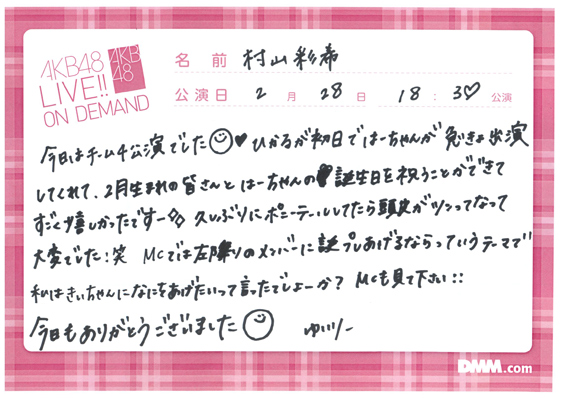 AKB48
LIVE!!
ON DEMAND
AKB
48
名前 村山彩希
公演日 2月28日 18:30公演
今日はチーム4公演でした ひかるが初日ではーちゃんが急きょ出演
してくれて、2月生まれの皆さんとはーちゃんの誕生日を祝うことができて
すごく嬉しかったですー 久しぶりにポニーテールしてたら頭皮がツンってなって
大変でした!笑 MCでは左隣りのメンバーに誕プレあげるならっていうテーマで
私はきぃちゃんになにをあげたいって言ったでしょーか? MCも見て下さい!!
今日もありがとうございました ゆいりー
DMM.com